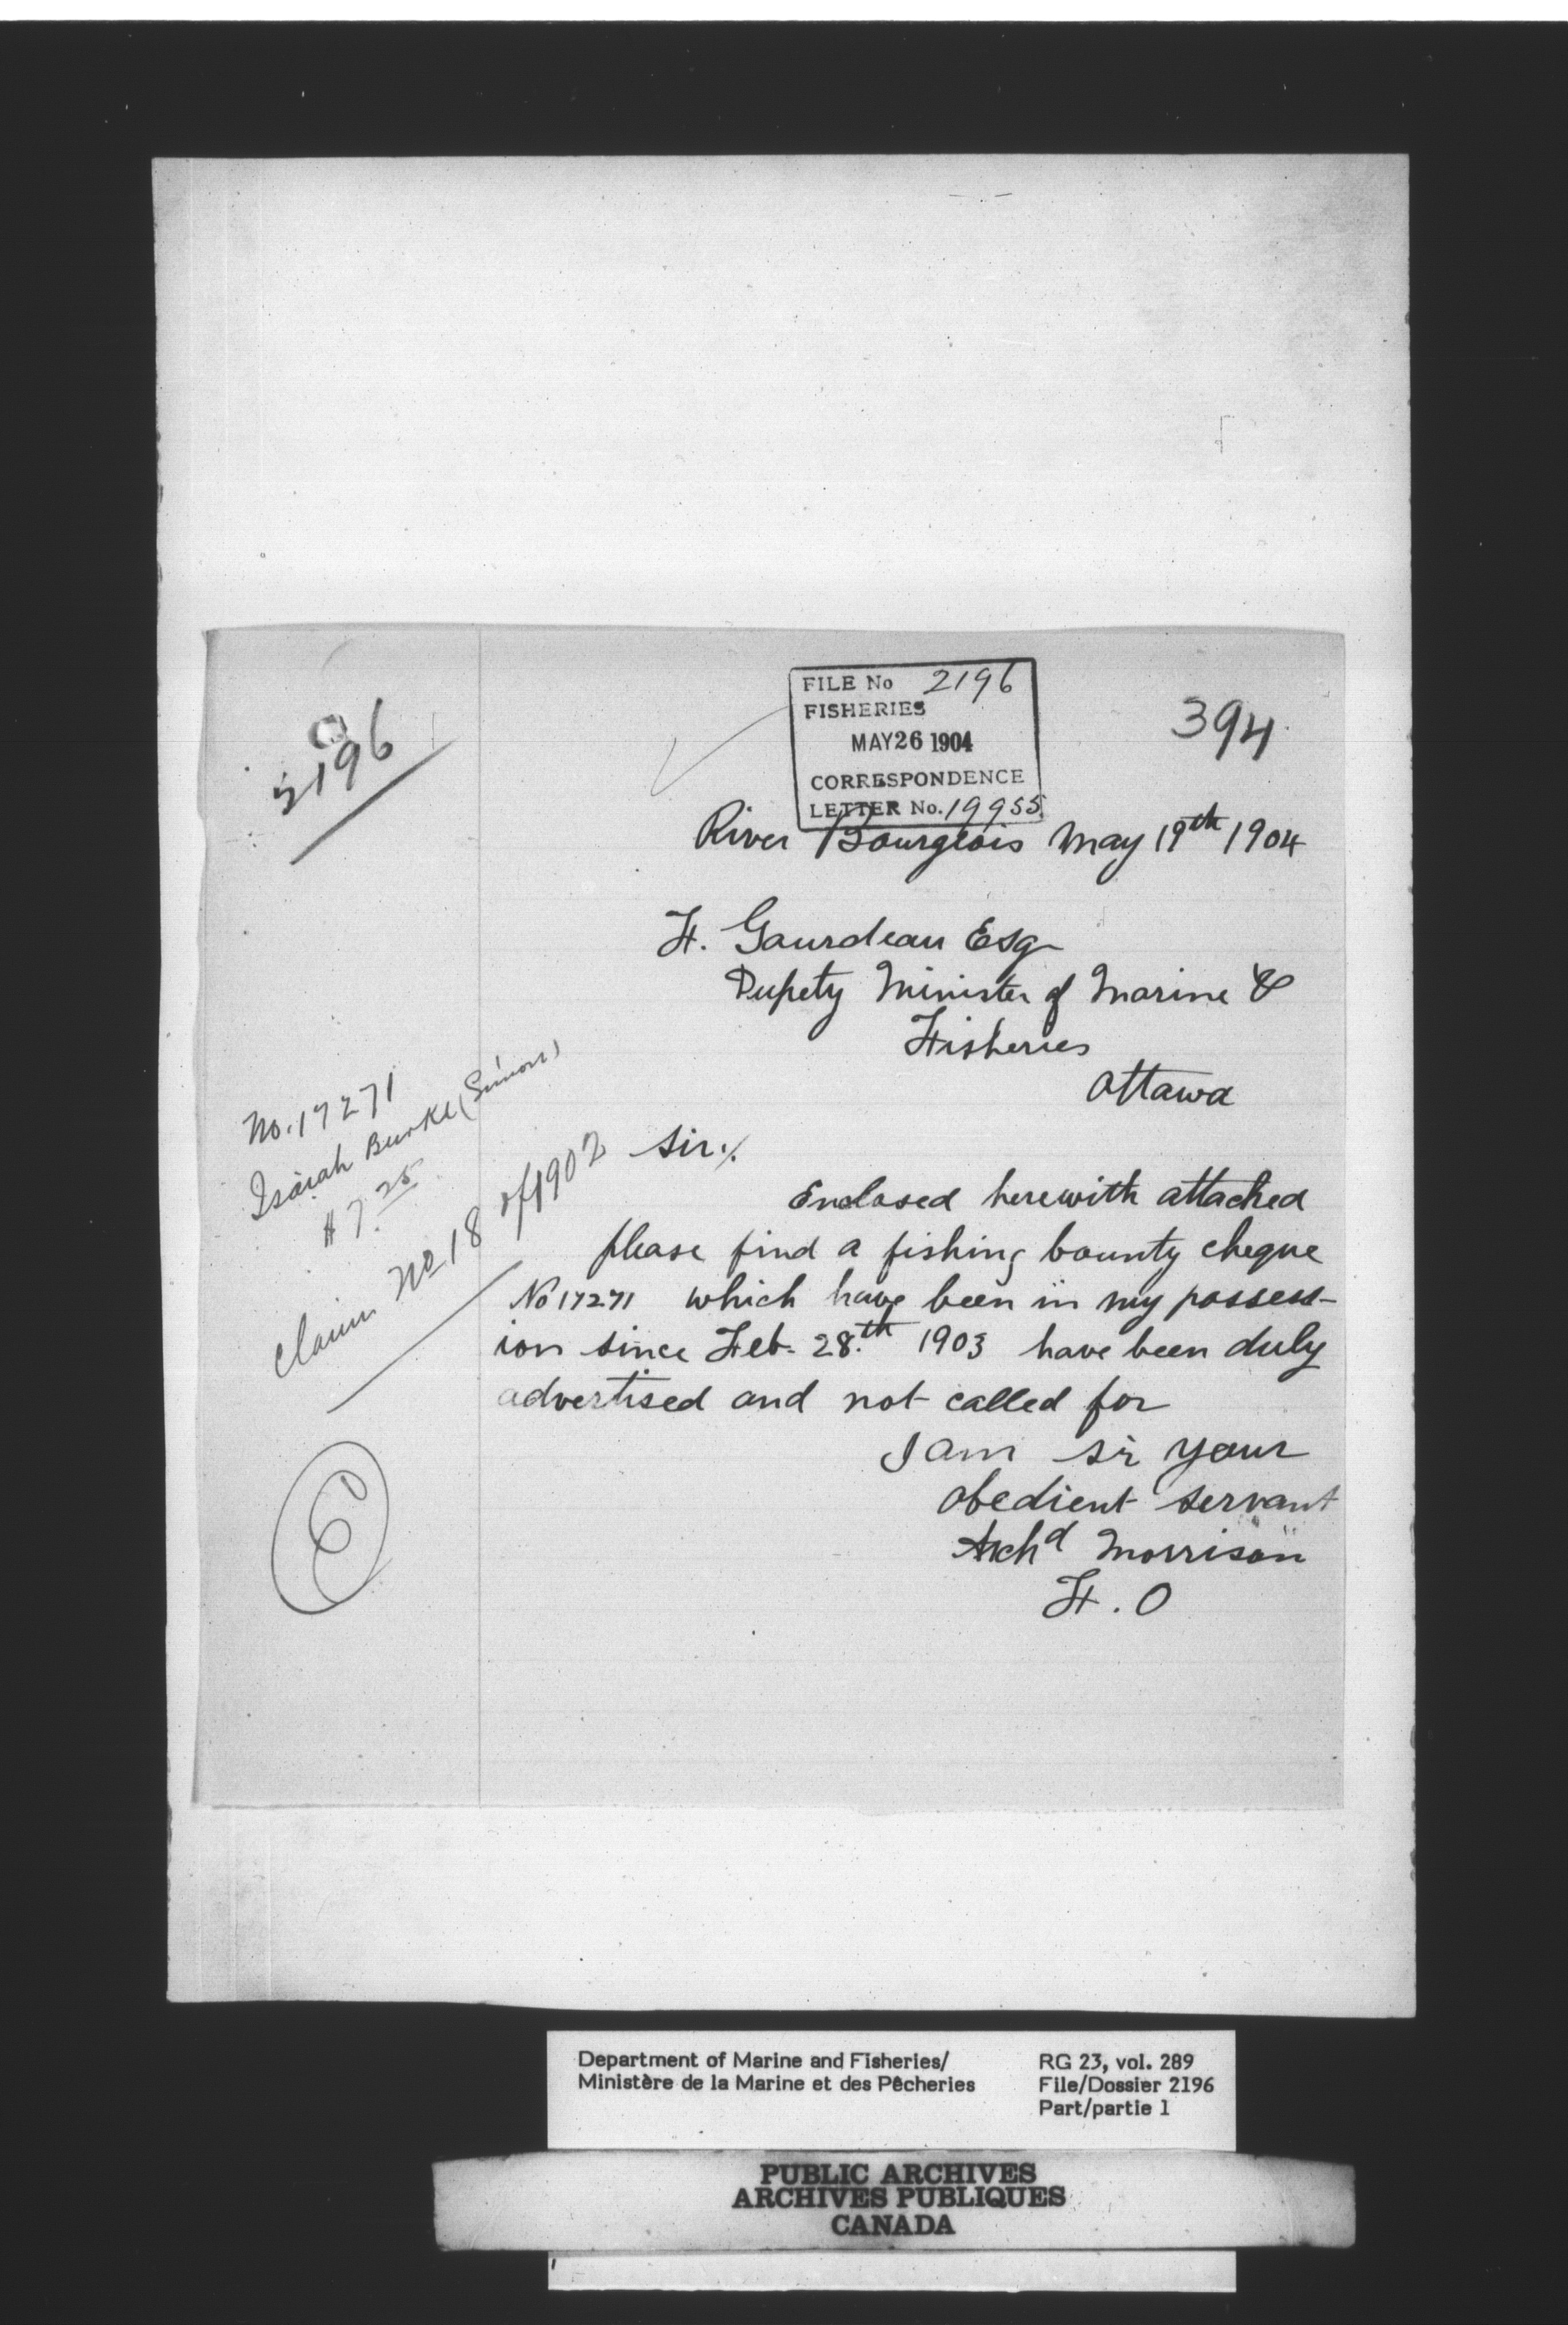 2196
FILE No 2196
FISHERIES
MAY 26 1904
CORRESPONDENCE
LETTER No. 19955
394
River Bourgeois May 19th 1904
F. Gourdeau Esq
Deputy Minister of Marine &
Fisheries
Ottawa
No. 17271
Isaiah Burke (Simon)
$7.25
Claim No 18 of 1902
Sir./.
Enclosed herewith attached
please find a fishing bounty cheque
No 17271 which have been in my possess-
ion since Feb. 28.th 1903 have been duly
advertised and not called for
I am sir your
obedient servant
Archd Morrison
F. O
6
Department of Marine and Fisheries/
Ministère de la Marine et des Pêcheries
RG 23, vol. 289
File/Dossier 2196
Part/partie 1
PUBLIC ARCHIVES
ARCHIVES PUBLIQUES
CANADA